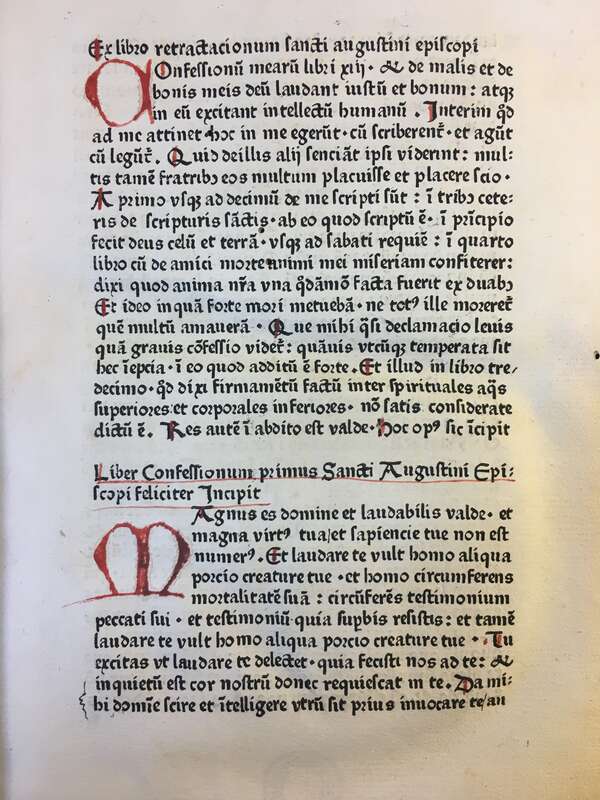 Ex libro retractacionum sancti augustini episcopi
COnfessionū mearū libri xiij · & de malis et de
bonis meis deū laudant iustū et bonum : atqꝫ
in eū excitant intellectū humanū · Interim qd̄
ad me attinet hoc in me egerūt · cū scriberent̄ · et agūt
cū legūt̄ · Quid de illis alij senciāt ipsi viderint : mul-
tis tamē fratribꝫ eos multum placuisse et placere scio ·
A primo vsqꝫ ad decimū de me scripti sūt : ī tribꝫ cete-
ris de scripturis sāctis · ab eo quod scriptū ē · ī prīcipio
fecit deus celū et terrā · vsqꝫ ad sabati requiē : ī quarto
libro cū de amici morte animi mei miseriam confiterer :
dixi quod anima nr̄a vna qd̄āmō facta fuerit ex duabꝫ
Et ideo inquā forte mori metuebā · ne totꝰ ille moreret̄
quē multū amauerā · Que mihi q̄si declamacio leuis
quā grauis cōfessio videt̄ : quāuis vtcūqꝫ temperata sit
hec īepcia · ī eo quod additū ē forte · Et illud in libro tre/
decimo · qd̄ dixi firmamētū factū inter spirituales aq̄s
superiores et corporales inferiores · nō satis considerate
dictū ē · Res autē ī abdito est valde · hoc opꝰ sic īcipit
Liber Confessionum primus Sancti Augustini Epi-
scopi feliciter Incipit
MAgnus es domine et laudabilis valde · et
magna virtꝰ tua/et sapiencie tue non est
numerꝰ · Et laudare te vult homo aliqua
porcio creature tue · et homo circumferens
mortalitatē suā : circūferēs testimonium
peccati sui · et testimoniū quia supbis resistis : et tamē
laudare te vult homo aliqua porcio creature tue · Tu
excitas vt laudare te delectet · quia fecisti nos ad te : &
inquietū est cor nostrū donec requiescat in te · Da mi-
hi domīe scire et ītelligere vtrū sit prius inuocare te/an